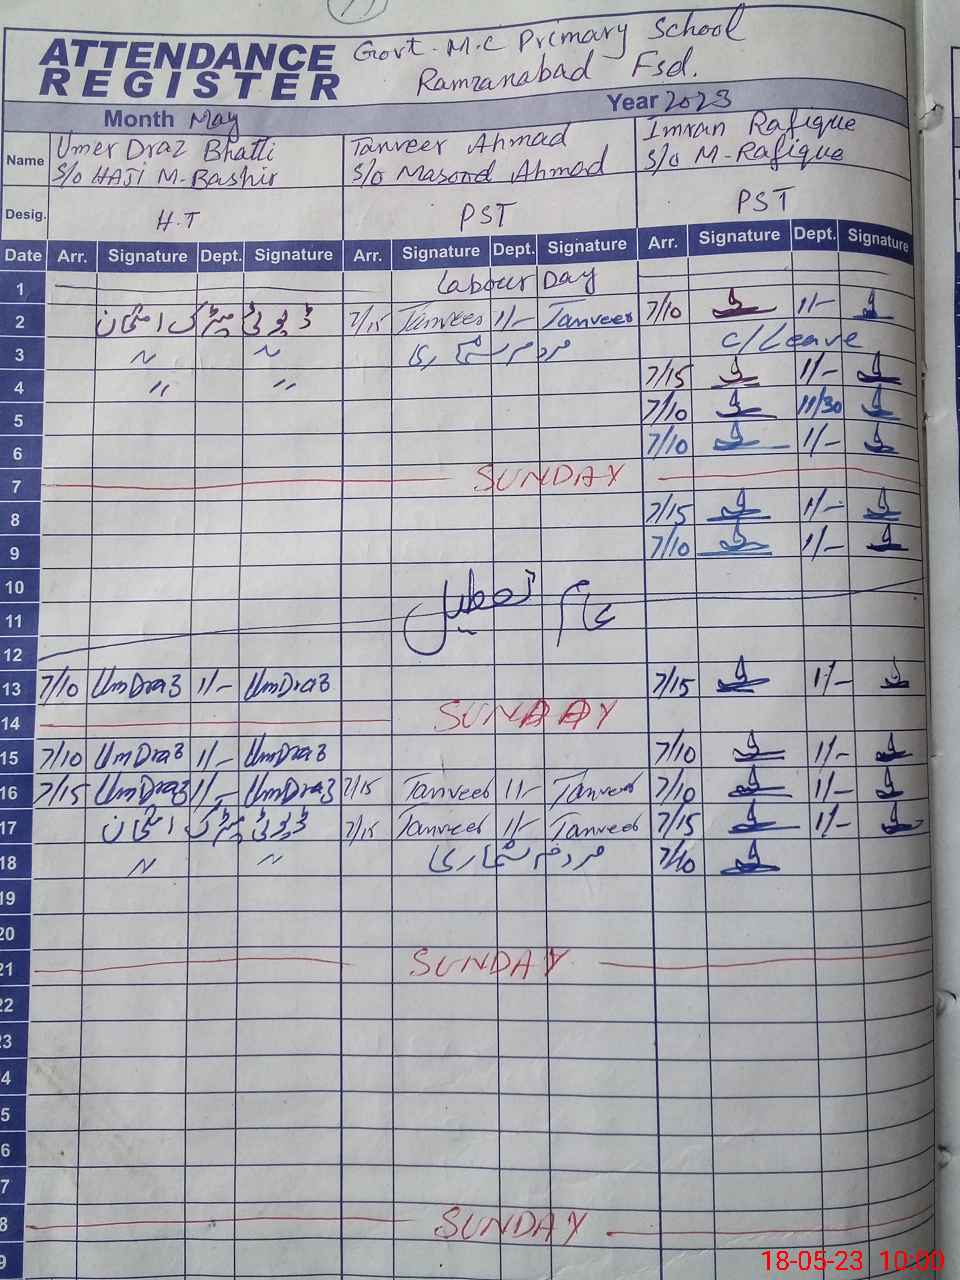 ATTENDANCE REGISTER
Govt. M.C Primary School
Ramzanabad Fsd.
Month May Year 2023
Name Umer Draz Bhatti S/o HAJI M. Bashir Tanveer Ahmad S/o Masood Ahmad Imran Rafique S/o M. Rafique
Desig. H.T PST PST
Date Arr. Signature Dept. Signature Arr. Signature Dept. Signature Arr. Signature Dept. Signature
1 Labour Day
2 ڈیوٹی میٹرک امتحان 7/15 Tanveer 1/- Tanveer 7/10 1/-
3 〃 〃 مردم شماری C/Leave
4 〃 〃 7/15 1/-
5 7/10 11/30
6 7/10 1/-
7 SUNDAY
8 7/15 1/-
9 7/10 1/-
10 عام تعطیل
11
12
13 7/10 UmDraz 1/- UmDraz 7/15 1/-
14 SUNDAY
15 7/10 UmDraz 1/- UmDraz 7/10 1/-
16 7/15 UmDraz 1/- UmDraz 7/15 Tanveer 1/- Tanveer 7/10 1/-
17 ڈیوٹی میٹرک امتحان 7/15 Tanveer 1/- Tanveer 7/15 1/-
18 〃 〃 مردم شماری 7/10
19
20
21 SUNDAY
22
23
4
5
6
7
8 SUNDAY
9
18-05-23 10:00